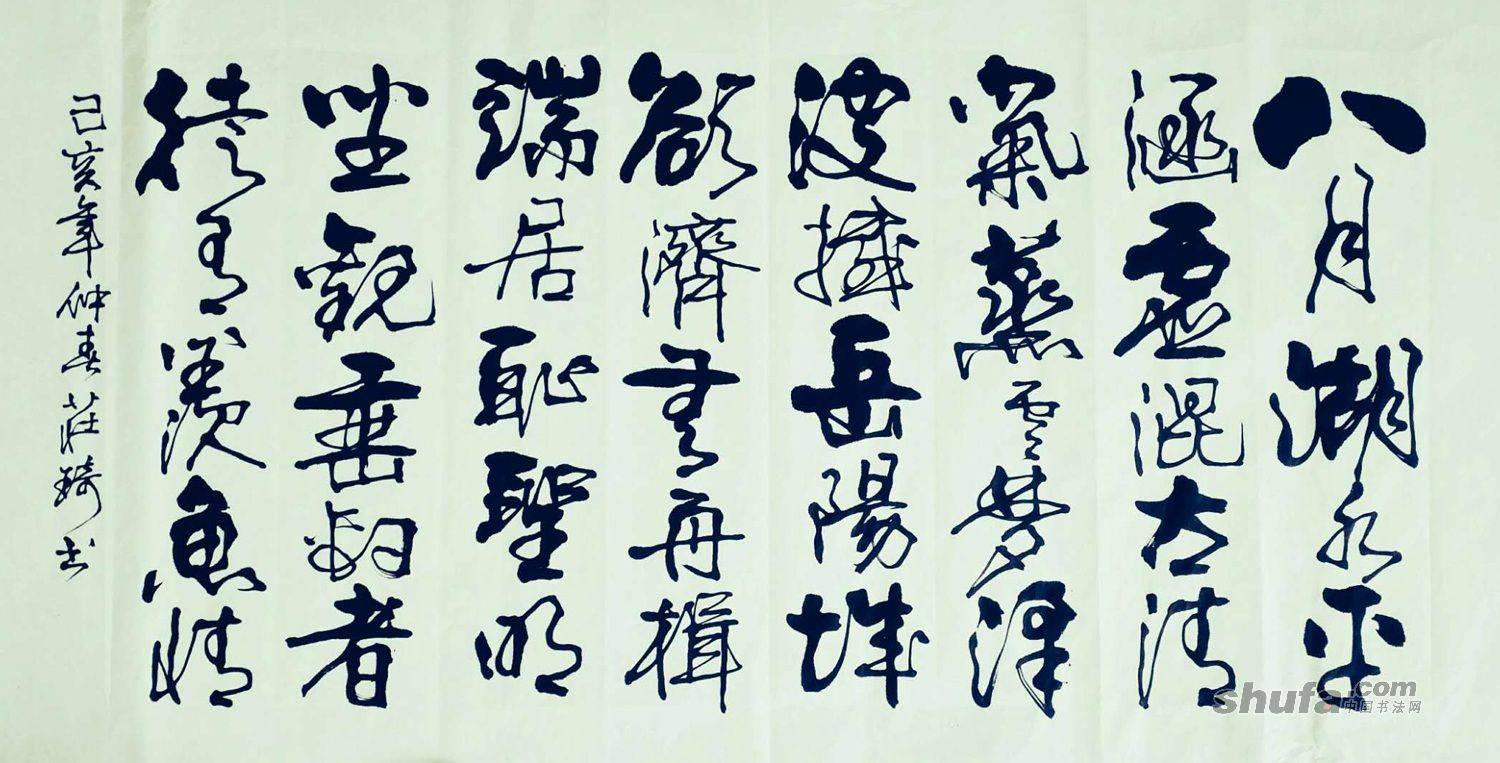 八月湖水平
涵虛混太清
氣蒸雲夢泽
波撼岳陽城
欲濟無舟楫
端居耻聖明
坐觀垂釣者
徒有羨魚情
己亥年仲春莊琦书
shufa.com
中国书法网